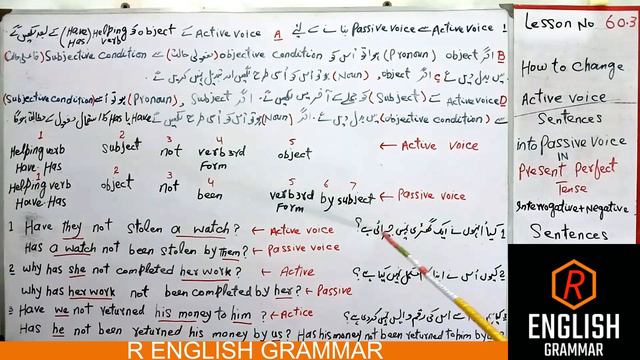 1 Active voice سے Passive voice بنانے کے لیے A Active voice کے object کو Helping verb (Have Has) سے پہلے لکھیں گے
B اگر object (Pronoun) ہو تو اُس کو objective condition (مفعولی حالت) سے Subjective condition (فاعلی حالت)
میں بدل دیں گے C اگر object (Noun) ہو تو اُس کو اُسی طرح لکھیں اور تبدیل نہیں کریں گے
D Active voice کے (Subject) کو جملے کے آخر میں لکھیں گے۔ اگر Subject (Pronoun) ہو تو اُسے (Subjective condition)
سے (objective condition) میں بدل دیں گے۔ اگر (Noun) ہو تو اُس کو اُسی طرح لکھیں گے Has یا Have کا استعمال
1 2 3 4 5
Helping verb subject not verb 3rd object ← Active voice
Have Has Form
1 2 3 4 5 6 7
Helping verb object not been verb 3rd by subject ← Passive voice
Have Has Form
1 Have they not stolen a watch? ← Active voice 1 کیا اُنہوں نے ایک گھڑی نہیں چرائی ہے؟
Has a watch not been stolen by them? ← Passive voice
2 why has she not completed her work? ← Active 2 کیوں اُس نے اپنا کام مکمل نہیں کیا ہے؟
Why has her work not been completed by her? ← Passive
3 Have we not returned his money to him? ← Actice کیا ہم نے اُس کی رقم واپس نہیں کردی ہے؟
Has he not been returned his money by us? Has his money not been returned to him by
Lesson No 60.3
How to change
Active voice
Sentences
into Passive Voice
IN
Present Perfect
Tense
Interrogative + Negative
Sentences
R
ENGLISH
GRAMMAR
R ENGLISH GRAMMAR